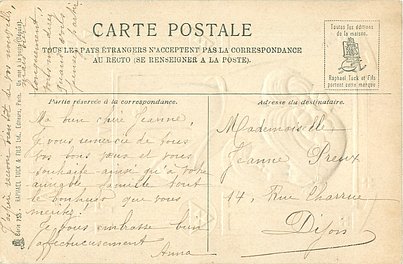 CARTE POSTALE
TOUS LES PAYS ÉTRANGERS N'ACCEPTENT PAS LA CORRESPONDANCE
AU RECTO (SE RENSEIGNER A LA POSTE).
Toutes les éditions
de la maison
Raphael Tuck et Fils
portent cette marque
Partie réservée à la correspondance.
Adresse du destinataire.
Ma bien chère Jeanne,
Je vous remercie de vos
bons vœux et vous
souhaite ainsi qu'à votre
aimable famille tout
le bonheur que vous
méritez.
Je vous embrasse bien
affectueusement
Anna
Mademoiselle
Jeanne Preux
14, Rue Charrue
Dijon
RAPHAEL TUCK & FILS
J'espère recevoir bientôt de vos nouvelles,